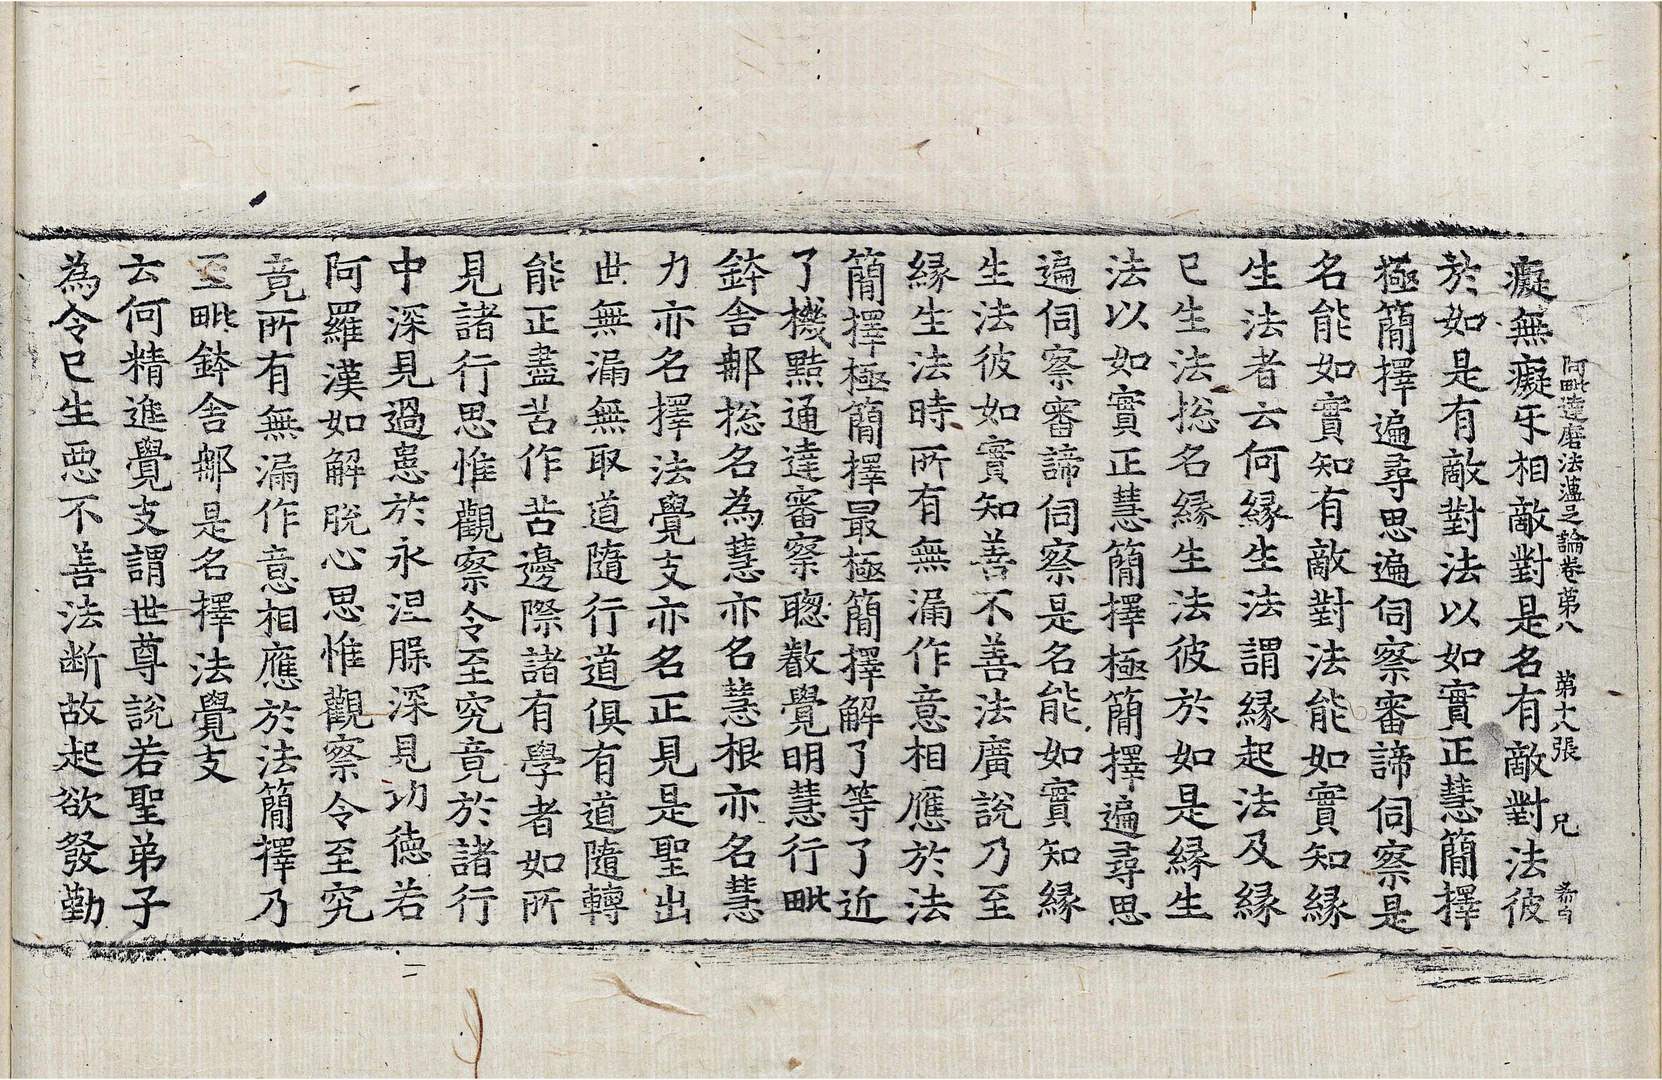 阿毗達磨法蘊足論卷第八　第十八張　兄
癡無癡𤓰相敵對是名有敵對法彼
於如是有敵對法以如實正慧簡擇
極簡擇遍尋思遍伺察審諦伺察是
名能如實知有敵對法能如實知緣
生法者云何緣生法謂緣起法及緣
已生法揔名緣生法彼於如是緣生
法以如實正慧簡擇極簡擇遍尋思
遍伺察審諦伺察是名能如實知緣
生法彼如實知善不善法廣說乃至
緣生法時所有無漏作意相應於法
簡擇極簡擇最極簡擇解了等了近
了機黠通達審察聰叡覺明慧行毗
鉢舍那揔名為慧亦名慧根亦名慧
力亦名擇法覺支亦名正見是聖出
世無漏無取道隨行道俱有道隨轉
能正盡苦作苦邊際諸有學者如所
見諸行思惟觀察令至究竟於諸行
中深見過患於永涅槃深見功德若
阿羅漢如解脫心思惟觀察令至究
竟所有無漏作意相應於法簡擇乃
至毗鉢舍那是名擇法覺支
云何精進覺支謂世尊說若聖弟子
為令已生惡不善法斷故起欲發勤